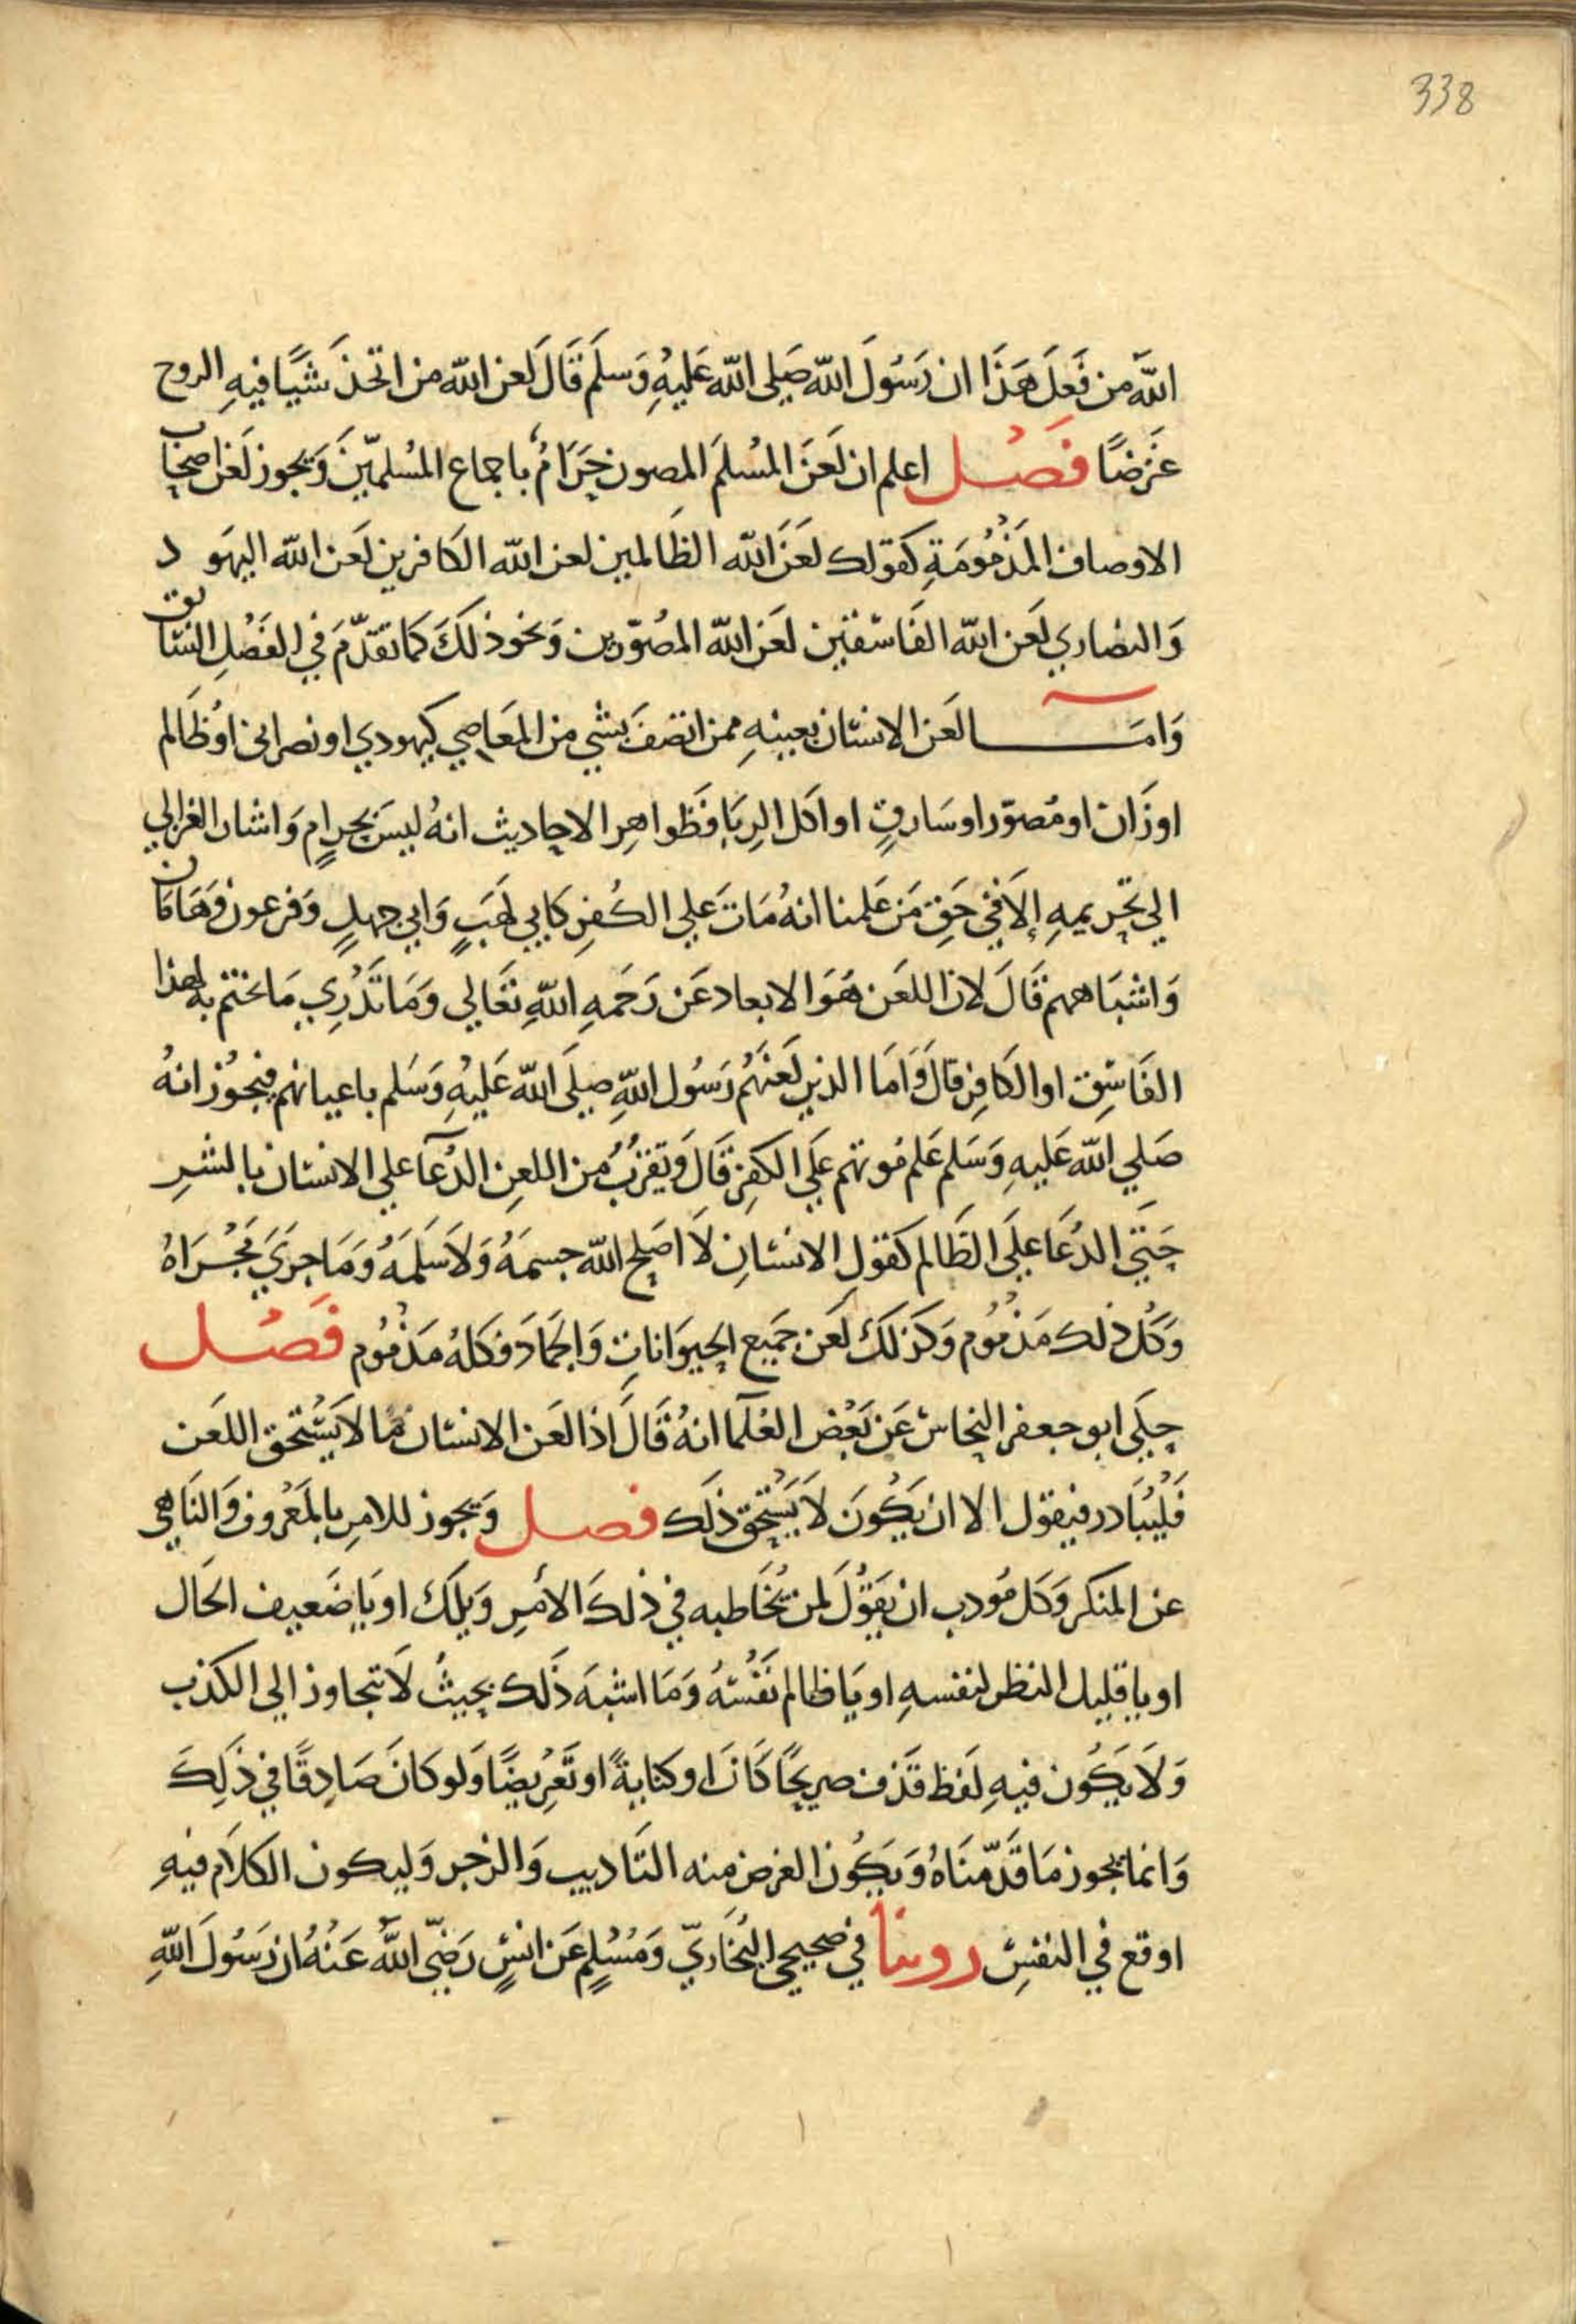 338
الله من فَعَلَ هَذَا ان رَسُولَ الله صَلى الله عَليهِ وَسلَم قَالَ لَعن الله من اتخذَ شَيًا فيهِ الروح
غَرَضًا فَصْل اعلم ان لَعَنَ المسُلمَ المصون حَرَامُ باجماع المسُلميّنَ وَيجوز لَعن اصحَاب
الاوصاف المَذْمُومَةِ كَقولك لعَنَ الله الظَالمين لعن الله الكَافرين لَعن الله اليهَود
وَالنصاري لَعن الله الفَاسقين لعَن الله المصُوّرين وَنحوذلَكَ كمَا تقدّمَ في الفَصْلِ السَابق
وَامَــا لعَن الانسان بعينهِ ممن اتصَفَ بشي من المعَاصِي كيهودي او نصرانى اوُظَالم
اوزَان او مُصوّر اوسَارقٍ او اكَل الرِبَا فَظواهِر الاحاديث انهُ ليسَ بحرامٍ وَاشار الغزالي
الي تحَريمهِ إلاَ في حَقِ مَن عَلمنا انهُ مَاتَ عَلي الكُفرِ كَابي لهَبٍ وَابي جهلٍ وَفرعون وَهَامَان
وَاشبَاههم قَالَ لان اللعَن هَوَ الابعاد عَن رَحَمهِ اللهِ تَعَالي وَمَا تَدْرِي مَا يختم به لهذا
الفَاسِق اوالكَافِرِ قالَ وَامَا الذين لَعَنَهُم رَسُول اللهِ صلَى الله عَليهِ وَسَلم باعيانهم فيجُوز انهُ
صَلي الله عَليهِ وَسَلم عَلم مُوتهم عَلَى الكفِر قَالَ وَيَقرُبُ من اللعِن الدُعَآ علي الانسان بالشرِ
حَتي الدُعَا علَى الظَالم كَقولِ الانسَانِ لاَ اصَلح الله جسمَهُ وَلاَ سَلَمَهُ وَمَا جرَيَ مَجْرَاهُ
وَكُل ذلك مَذْمُوم وَكَذلَكَ لَعَن جَميع الحيوَاناتِ وَالجمَادَ فكلهُ مَذْمُوم فَصْل
حكَى ابو جعفر النحاس عَن بَعْض العُلَمآ انهُ قَالَ اذا لعَن الانسان مَا لاَ يَسْتحق اللعَن
فَليُبَادر فيقول الا ان يَكُونَ لاَ يَسْتحَق ذلَك فصل وَيجوز للامِر بالمَعْروف وَالنَاهي
عن المنكر وَكل مُودب ان يَقوُلَ لمن يُخَاطبه في ذلكَ الأمرِ وَيلَك اويَا ضَعيف الحَال
او يا قليل النظر لنفسهِ او يَا ظالم نَفْسَهُ وَمَا اشبَه ذَلك بحيثُ لاَ تتجاوز الي الكذب
وَلاَ يَكُون فيهِ لَفظ قذف صريحًا كَانَ او كنايةً او تَعْريضًا وَلو كَانَ صَادِقًا في ذَلِكَ
وَانما يجوز مَا قَدّمنَاهُ وَيَكُون الغرض منه التَاديب وَالزجر وَليكون الكلاَم فيهِ
اوقع في النفسِ روينا في صحيحي البُخَاريّ وَمُسْلمٍ عَن انسٍ رَضّي اللهُ عَنْهُ ان رَسُولَ اللهِ